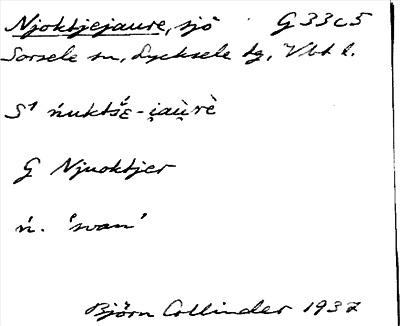 Njoktjejaure, sjö G 33 c 5
Sorsele sn, Lycksele tg, Vbt l.
S1 ńuktšɛ́ - i̯au̯rè
G Njuoktjer
ń. 'svan'
Björn Collinder 1937